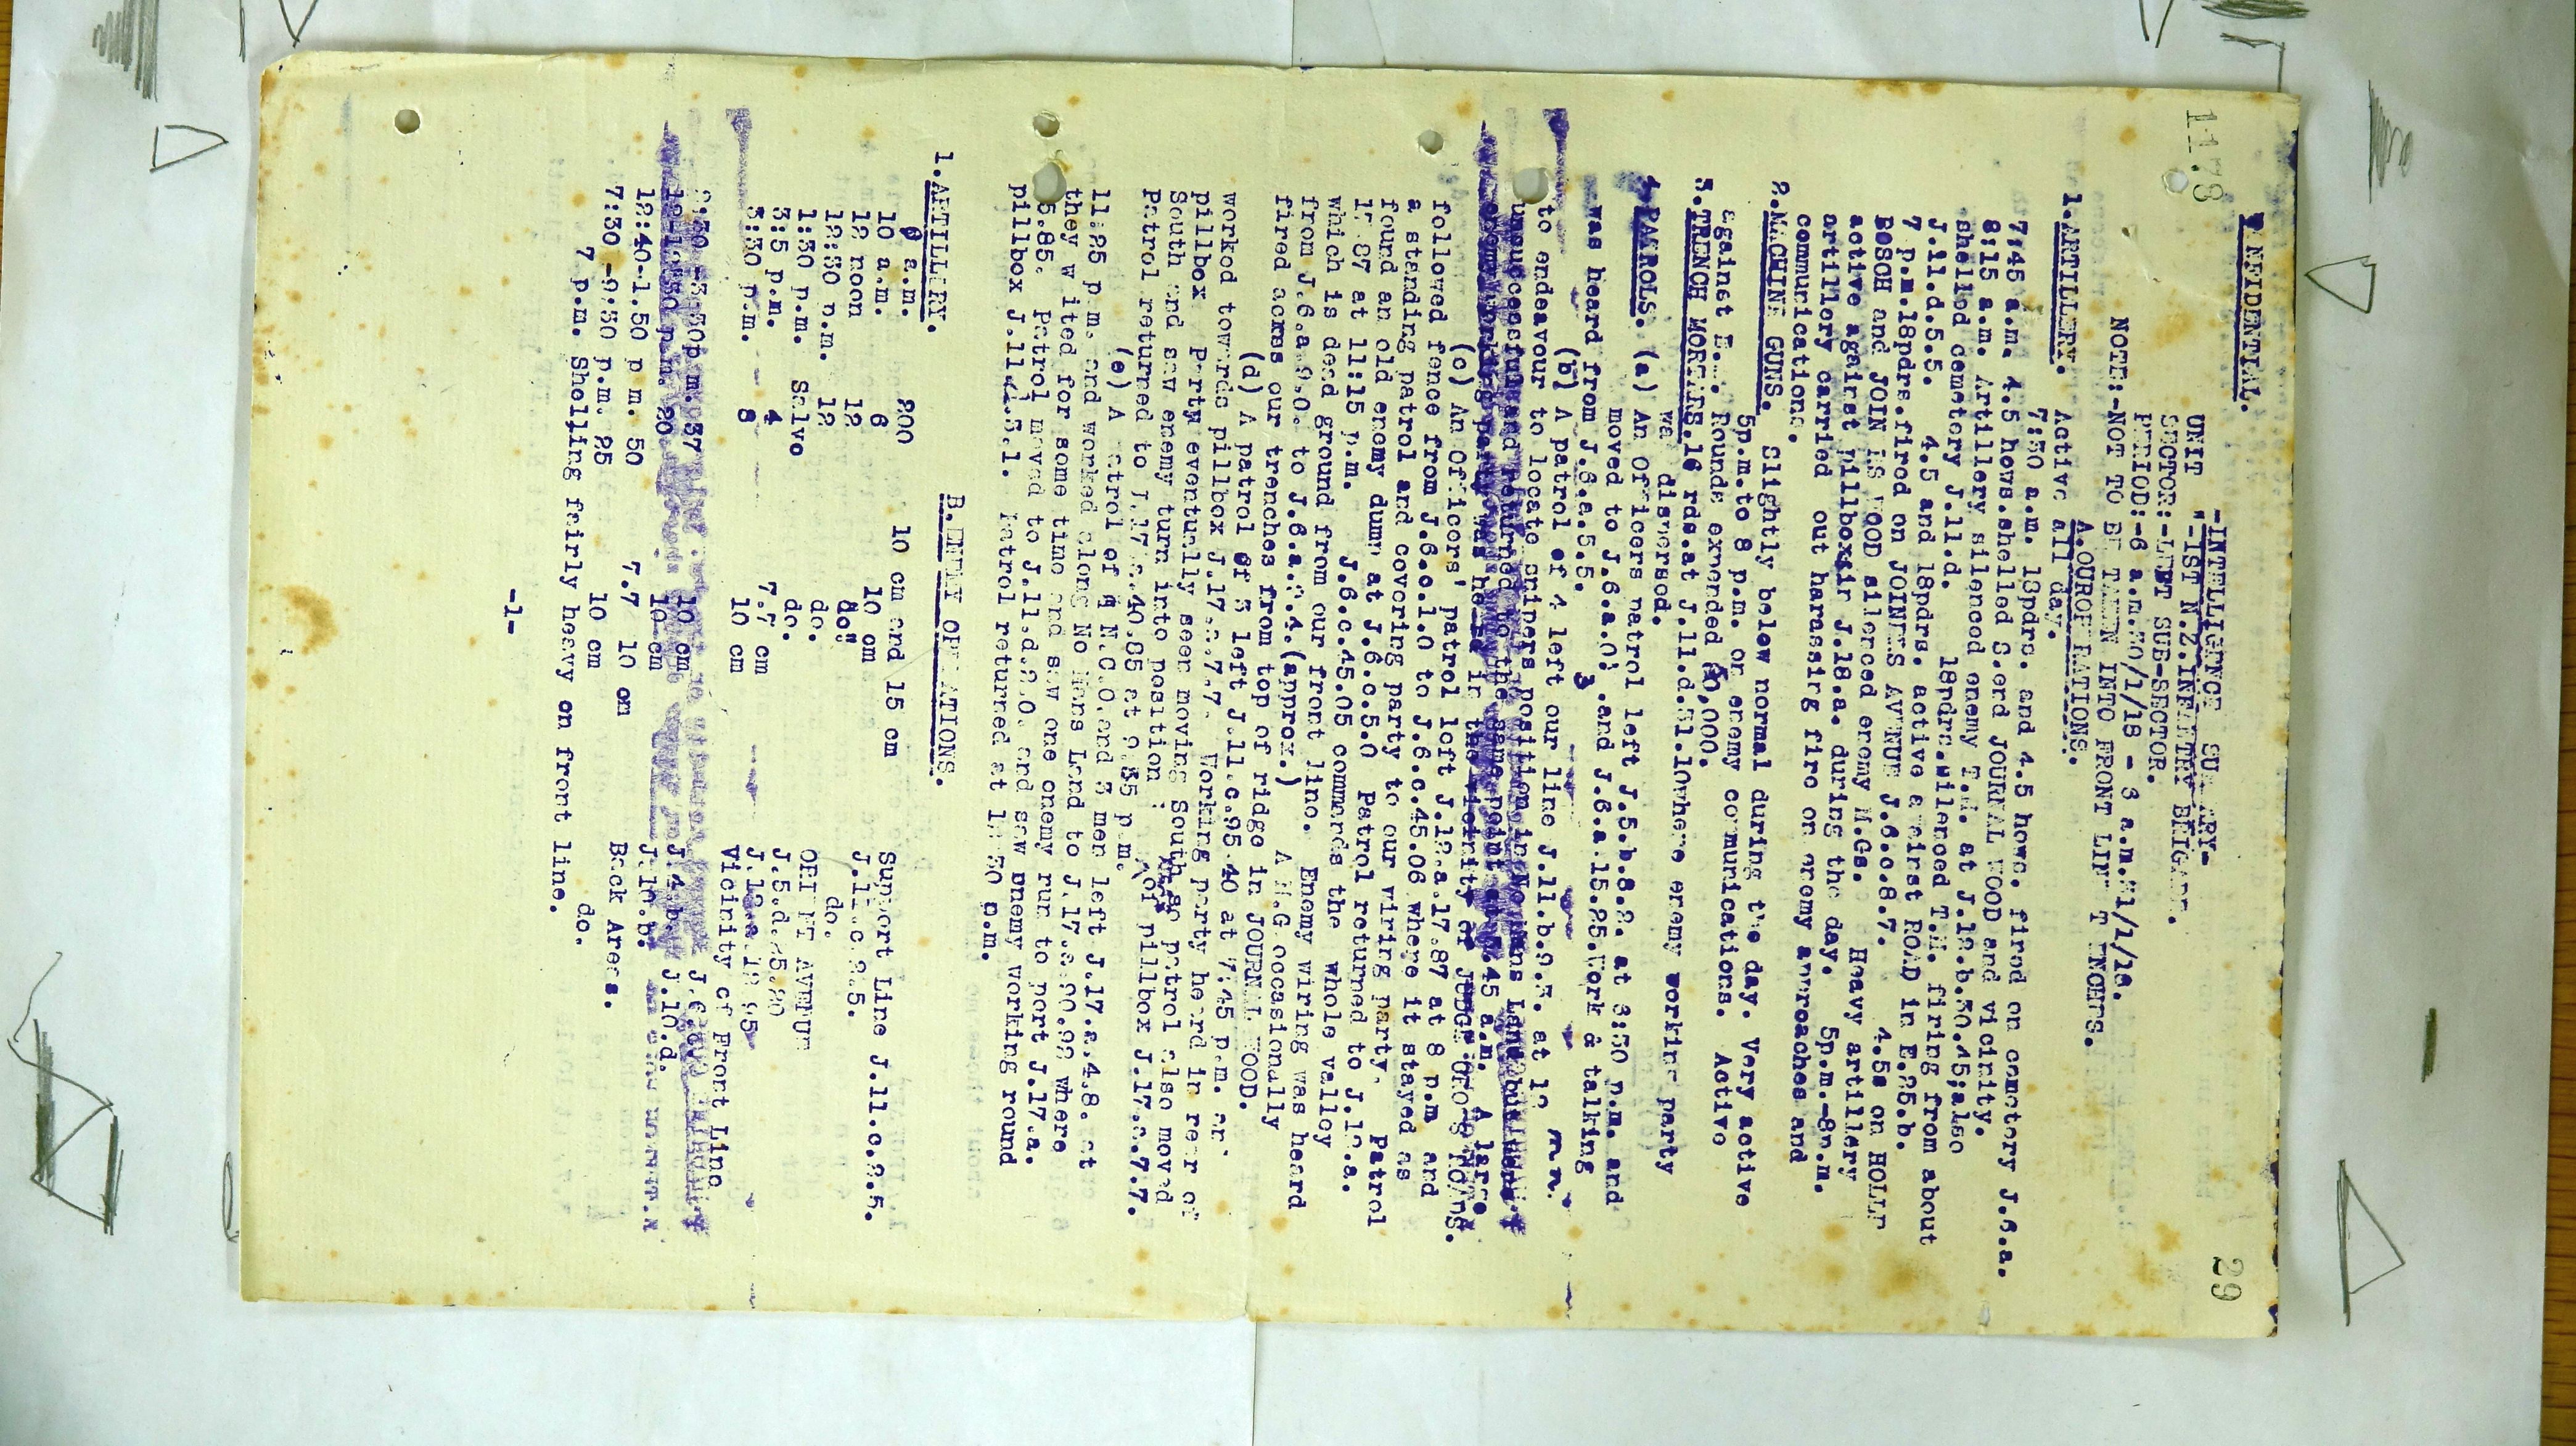 1178
29
CONFIDENTIAL.
-INTELLIGENCE SUMMARY-
UNIT "-1ST N.Z.INFANTRY BRIGADE.
SECTOR:-LEFT SUB-SECTOR.
PERIOD:-6 a.m.30/1/18 - 6 a.m.31/1/18.
NOTE:-NOT TO BE TAKEN INTO FRONT LINE TRENCHES.
A.OUR OPERATIONS.
1.ARTILLERY. Active all day.
7:30 a.m. 18pdrs. and 4.5 hows. fired on cemetery J.6.a.
7:45 a.m. 4.5 hows.shelled S.end JOURNAL WOOD and vicinity.
8:15 a.m. Artillery silenced enemy T.M. at J.12.b.30.45;also
shelled cemetery J.11.d. 18pdrs.silenced T.M. firing from about
J.11.d.5.5. 4.5 and 18pdrs. active against ROAD in E.25.b.
7 p.m.18pdrs.fired on JOINTS AVENUE J.6.c.8.7. 4.5s on HOLLE
BOSCH and JOIN IS WOOD silenced enemy M.Gs. Heavy artillery
active against pillbox in J.18.a. during the day. 5p.m.-8p.m.
artillery carried out harassing fire on enemy approaches and
communications.
2.MACHINE GUNS. Slightly below normal during the day. Very active
5p.m.to 8 p.m. on enemy communications. Active
against E.A. Rounds expended 0,000.
3.TRENCH MORTARS.16 rds.at J.11.d.31.10where enemy working party
was dispersed.
4.PATROLS. (a) An Officers patrol left J.5.b.8.2. at 8:30 p.m. and
moved to J.6.a.0. 3 .and J.6.a.15.25.Work & talking
was heard from J.6.a.5.5.
(b) A patrol of 4 left our line J.11.b.9.3. at 12 m.n.
to endeavour to locate snipers position in No Mans Land but were
unsuccessful and returned to the same point at .45 a.m. A large
enemy working party was heard in the vicinity of JUDGE CROSS ROADS.
(c) An Officers' patrol left J.12.a.17.87 at 8 p.m and
followed fence from J.6.c.1.0 to J.6.c.45.06 where it stayed as
a standing patrol and covering party to our wiring party. Patrol
found an old enemy dump at J.6.c.5.0 Patrol returned to J.12.a.
17.87 at 11:15 p.m. J.6.c.45.05 commands the whole valley
which is dead ground from our front line. Enemy wiring was heard
from J.6.a.9.0. to J.6.a.9.4.(approx.) A M.G occasionally
fired across our trenches from top of ridge in JOURNAL WOOD.
(d) A patrol of 3 left J.11.c.95.40 at 7:45 p.m. and
worked towards pillbox J.17.a.7.7. Working party heard in rear of
pillbox Party eventually seen moving South so patrol also moved
South and saw enemy turn into position of pillbox J.17.a.7.7.
Patrol returned to J.17.a.40.85 at 9.35 p.m.
(e) A patrol of 1 N.C.O.and 3 men left J.17.a.4.8. at
11:25 p.m. and worked along No Mans Land to J.17.a.90.92 where
they waited for some time and saw one enemy run to port J.17.a.
5.85. Patrol moved to J.11.d.2.0. and saw enemy working round
pillbox J.11.d.3.1. Patrol returned at 1:30 p.m.
B.ENEMY OPERATIONS.
1.ARTILLERY.
9 a.m. 200 10 cm and 15 cm Support Line J.11.c.2.5.
10 a.m. 6 10 cm J.11.c.2.5.
12 noon 12 do. do.
12:30 p.m. 12 do. AVENUE
1:30 p.m. Salvo do. J.5.d.25.20
3:5 p.m. 4 7.7 cm
3:30 p.m. 8 10 cm Vicinity of Front Line
2:30 -3:30p.m. 37 10 cm
12-12:30 p.m. 20 10 cm J.4.b. J.10.d.
12:40-1.50 p m. 50 7.7 10 cm J.10.b.
7:30 -9:30 p.m. 25 10 cm Back Areas.
7 p.m. Shelling fairly heavy on front line. do.
-1-